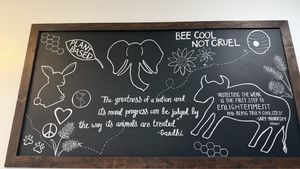 BEE COOL
NOT CRUEL
PLANT
BASED
The greatness of a nation and
its moral progress can be judged by
the way its animals are treated
-Gandhi
PROTECTING THE WEAK
IS THE FIRST STEP TO
ENLIGHTENMENT
AND BEING TRULY CIVILIZED